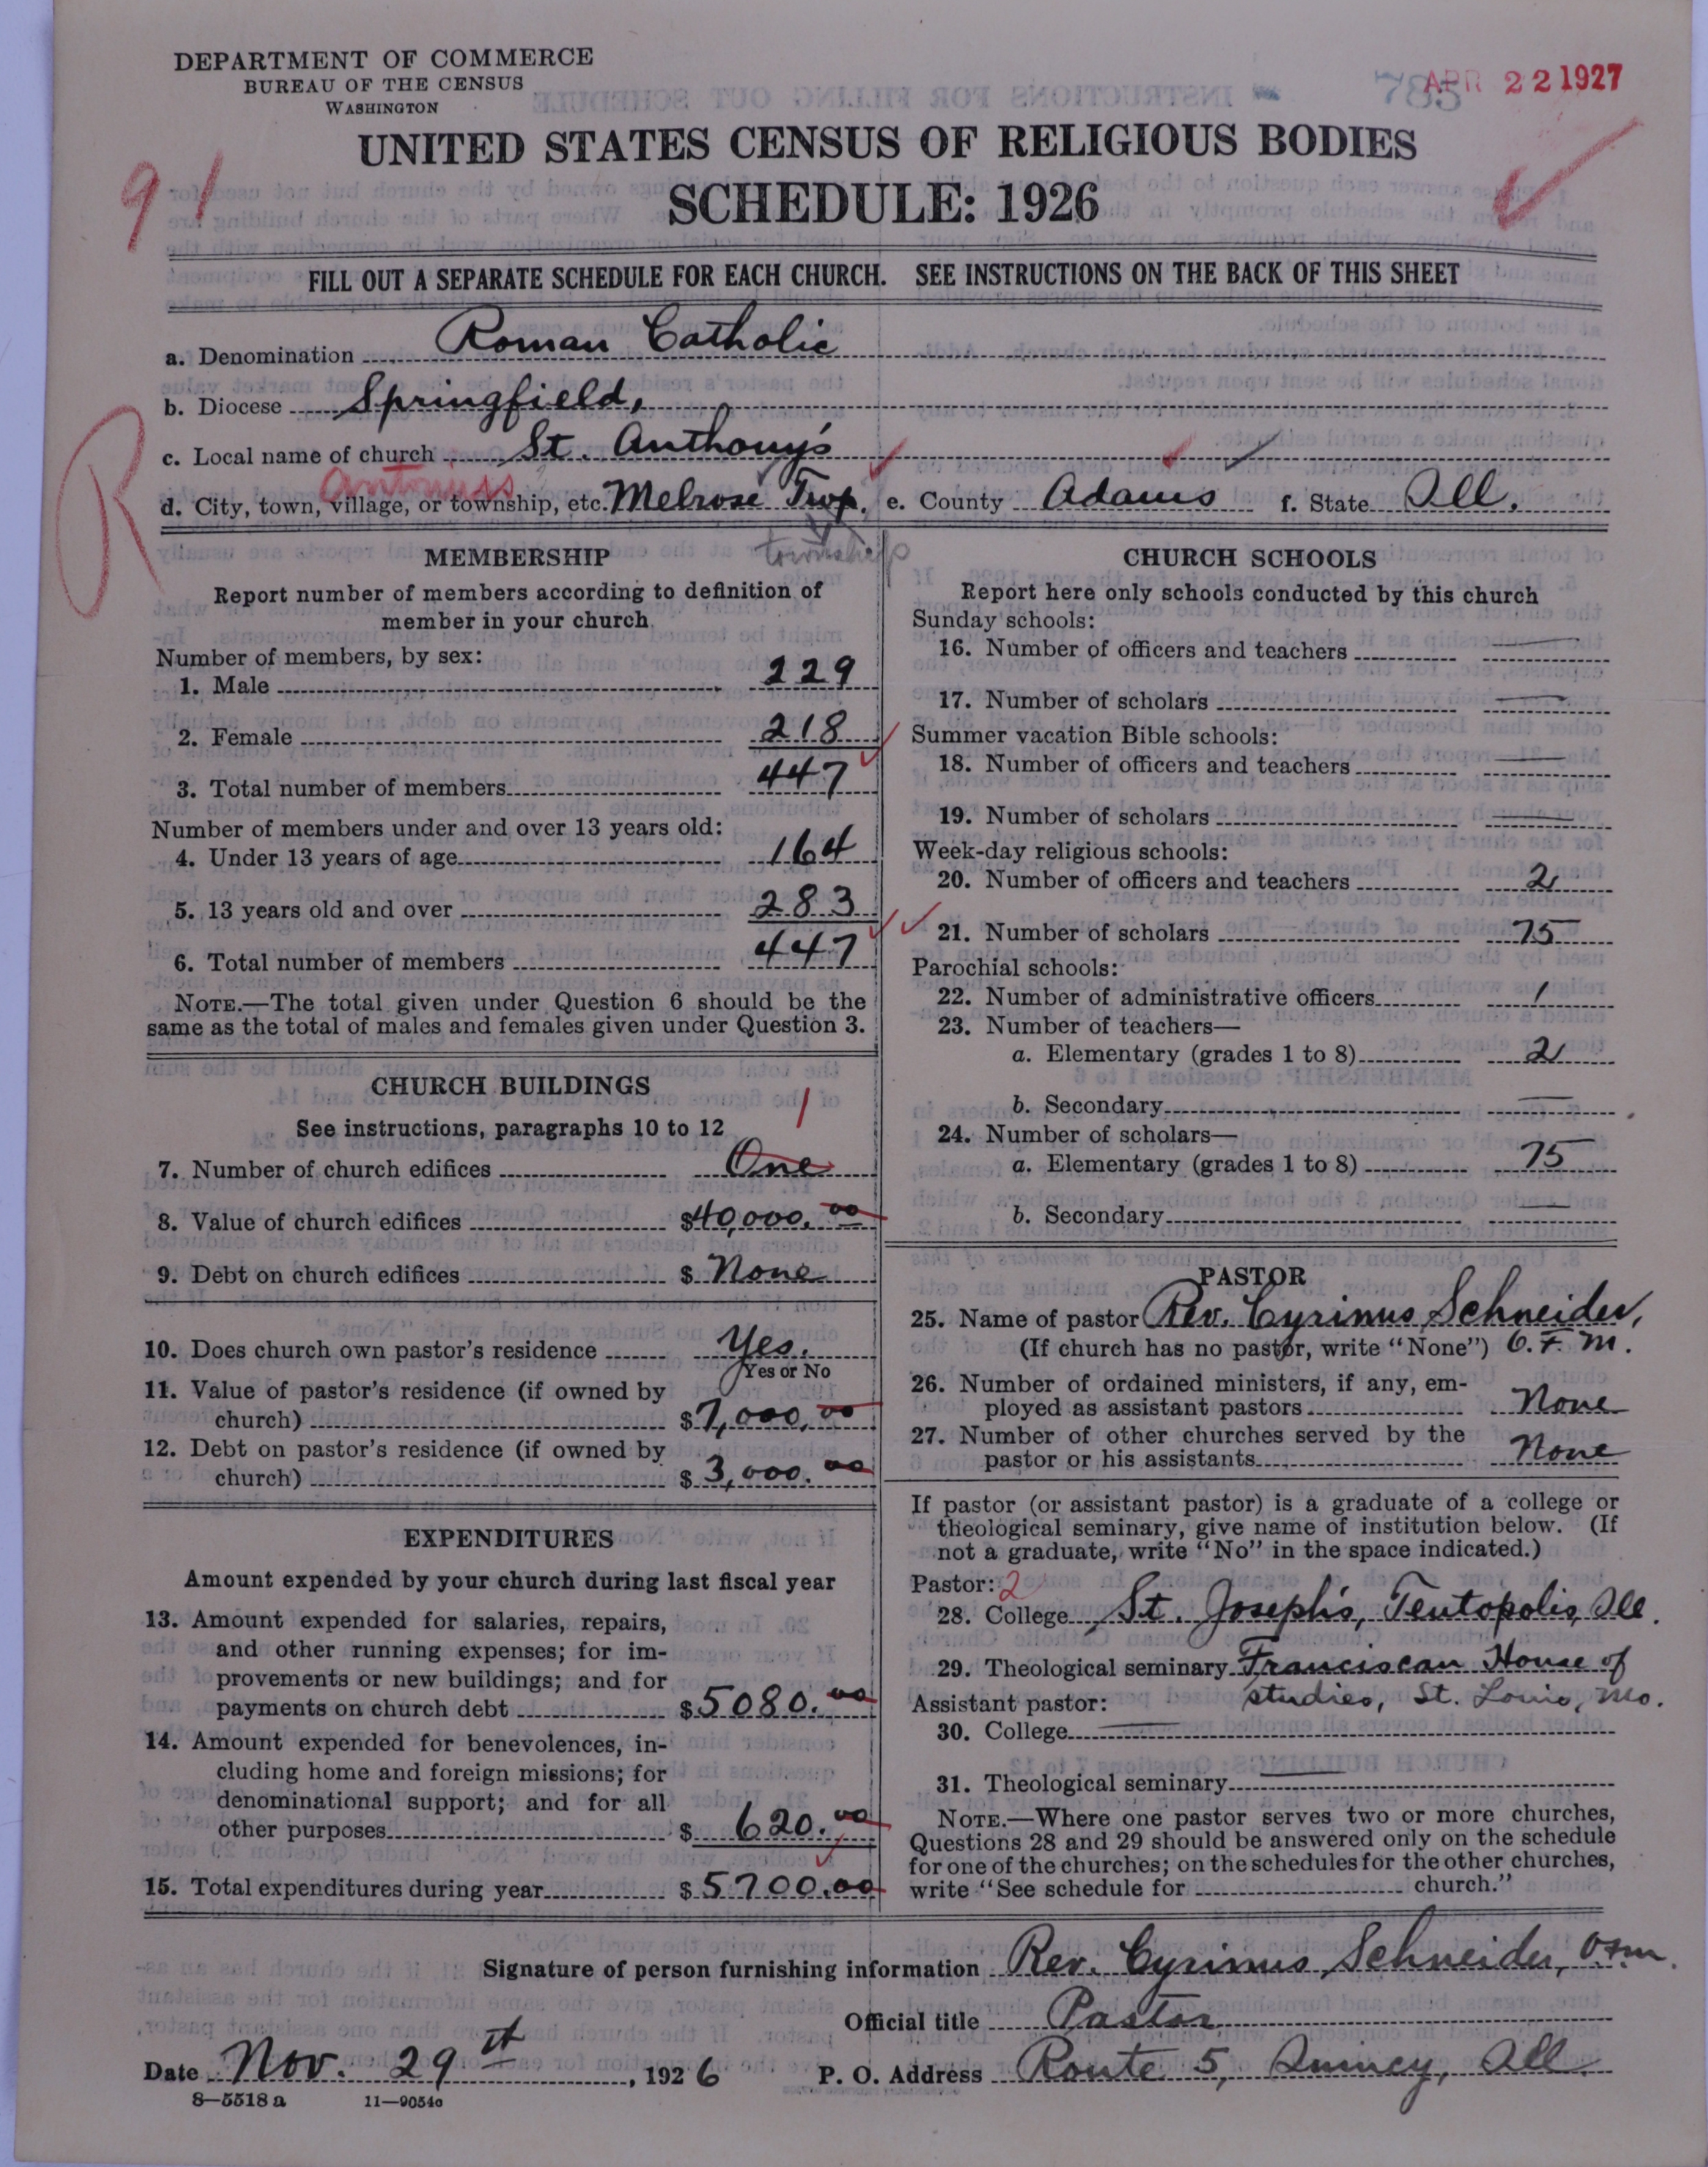 DEPARTMENT OF COMMERCE
BUREAU OF THE CENSUS
WASHINGTON
785
APR 22 1927
UNITED STATES CENSUS OF RELIGIOUS BODIES
SCHEDULE: 1926
91
FILL OUT A SEPARATE SCHEDULE FOR EACH CHURCH. SEE INSTRUCTIONS ON THE BACK OF THIS SHEET
a. Denomination Roman Catholic
b. Diocese Springfield,
R
c. Local name of church St. Anthony's
d. City, town, village, or township, etc. Melrose Twp. e. County Adams f. State Ill.
township
MEMBERSHIP
Report number of members according to definition of
member in your church
Number of members, by sex:
1. Male 229
2. Female 218
3. Total number of members 447
Number of members under and over 13 years old:
4. Under 13 years of age 164
5. 13 years old and over 283
6. Total number of members 447
NOTE.—The total given under Question 6 should be the
same as the total of males and females given under Question 3.
CHURCH BUILDINGS
See instructions, paragraphs 10 to 12
1
7. Number of church edifices One
8. Value of church edifices $40,000.00
9. Debt on church edifices $ None
10. Does church own pastor's residence Yes.
Yes or No
11. Value of pastor's residence (if owned by
church) $7,000.00
12. Debt on pastor's residence (if owned by
church) $3,000.00
EXPENDITURES
Amount expended by your church during last fiscal year
13. Amount expended for salaries, repairs,
and other running expenses; for im-
provements or new buildings; and for
payments on church debt $5080.00
14. Amount expended for benevolences, in-
cluding home and foreign missions; for
denominational support; and for all
other purposes $620.00
15. Total expenditures during year $5700.00
CHURCH SCHOOLS
Report here only schools conducted by this church
Sunday schools:
16. Number of officers and teachers —
17. Number of scholars —
Summer vacation Bible schools:
18. Number of officers and teachers —
19. Number of scholars —
Week-day religious schools:
20. Number of officers and teachers 2
21. Number of scholars 75
Parochial schools:
22. Number of administrative officers 1
23. Number of teachers—
a. Elementary (grades 1 to 8) 2
b. Secondary —
24. Number of scholars—
a. Elementary (grades 1 to 8) 75
b. Secondary —
PASTOR
25. Name of pastor Rev. Cyrinus Schneider,
(If church has no pastor, write "None") O.F.M.
26. Number of ordained ministers, if any, em-
ployed as assistant pastors None
27. Number of other churches served by the
pastor or his assistants None
If pastor (or assistant pastor) is a graduate of a college or
theological seminary, give name of institution below. (If
not a graduate, write "No" in the space indicated.)
Pastor: 2
28. College St. Joseph's, Teutopolis, Ill.
29. Theological seminary Franciscan House of
studies, St. Louis, Mo.
Assistant pastor:
30. College —
31. Theological seminary —
NOTE.—Where one pastor serves two or more churches,
Questions 28 and 29 should be answered only on the schedule
for one of the churches; on the schedules for the other churches,
write "See schedule for church."
Signature of person furnishing information Rev. Cyrinus Schneider, O.F.M.
Official title Pastor
Date Nov. 29th, 1926 P. O. Address Route 5, Quincy, Ill.
8—5518 a 11—9054a